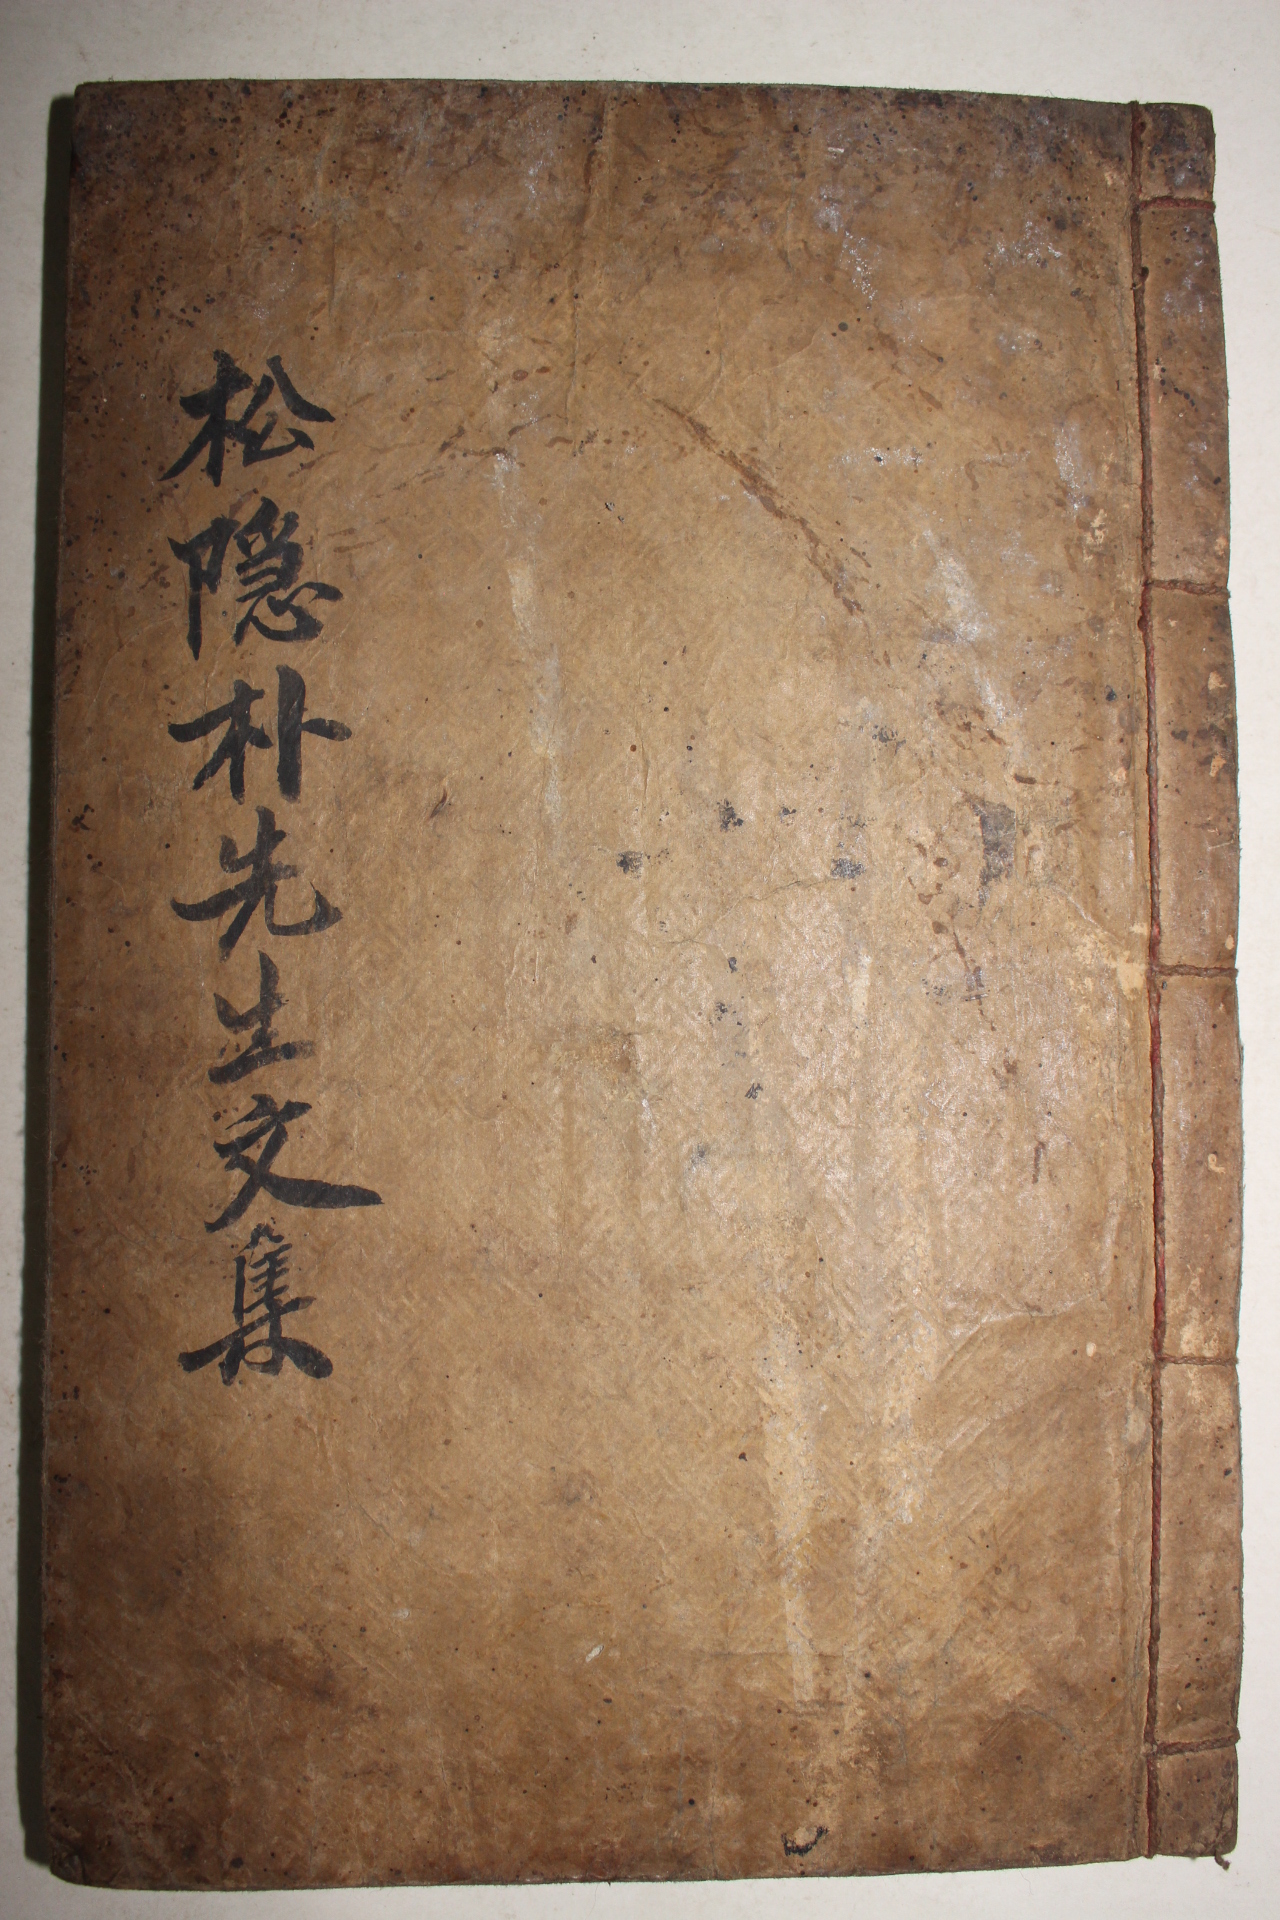 松隱朴先生文集